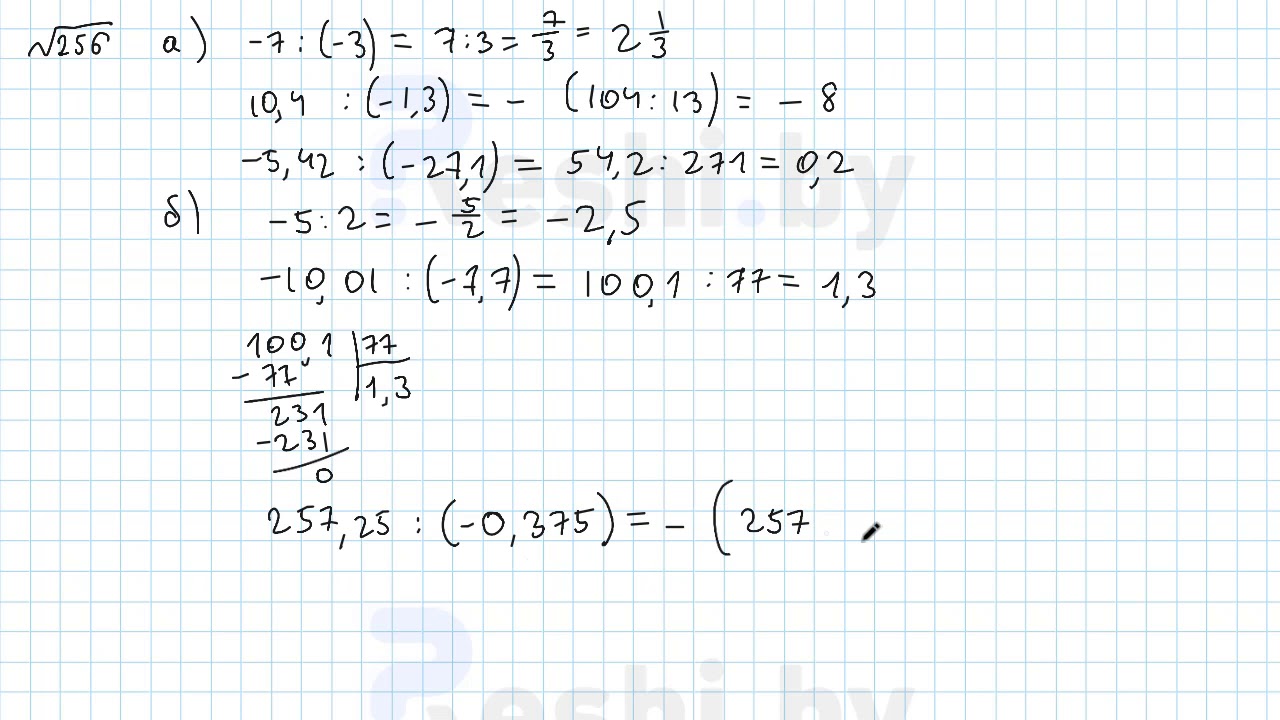 √256 а) -7 : (-3) = 7:3 = 7/3 = 2 1/3
10,4 : (-1,3) = - (104:13) = - 8
-5,42 : (-27,1) = 54,2:271 = 0,2
б) -5:2 = - 5/2 = -2,5
-10,01 : (-7,7) = 100,1 : 77 = 1,3
100,1 | 77
- 77 | 1,3
231
-231
0
257,25 : (-0,375) = - (257
Reshi.by
Reshi.by